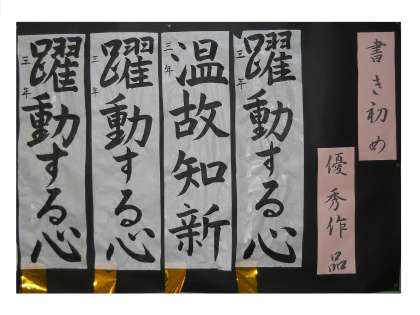 書き初め
優秀作品
躍動する心
三年
温故知新
三年
躍動する心
三年
躍動する心
三年